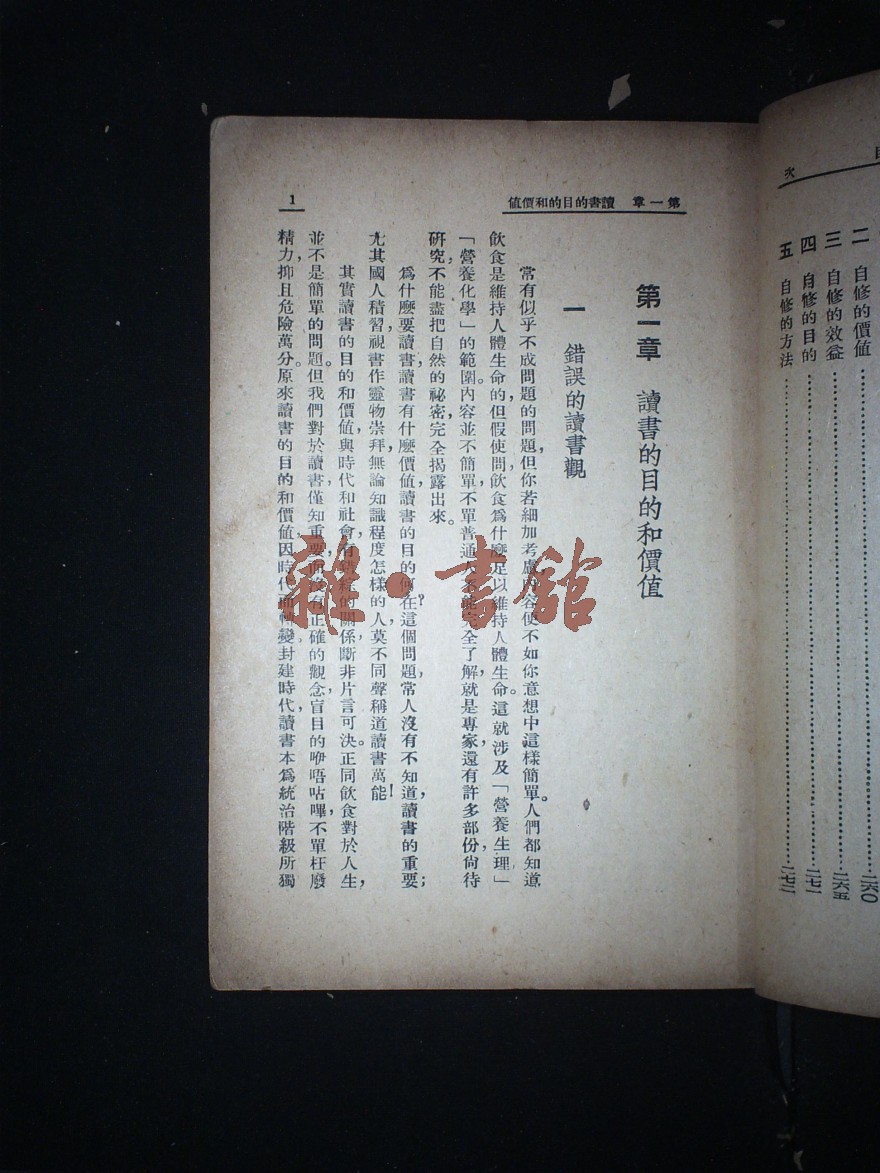 目次
二 自修的價値……二六〇
三 自修的效益……二六五
四 自修的目的……二七一
五 自修的方法……二七二
第一章 讀書的目的和價値
1
第一章 讀書的目的和價值
一 錯誤的讀書觀
常有似乎不成問題的問題，但你若細加考慮，內容便不如你意想中這樣簡單。人們都知道，
飲食是維持人體生命的，但假使問，飲食爲什麼足以維持人體生命。這就涉及「營養生理」
「營養化學」的範圍。內容並不簡單，不單普通人不能完全了解，就是專家，還有許多部份，尙待
研究，不能盡把自然的祕密，完全揭露出來。
爲什麼要讀書，讀書有什麼價値，讀書的目的何在？這個問題，常人沒有不知道，讀書的重要；
尤其國人積習，視書作靈物崇拜，無論知識程度怎樣的人，莫不同聲稱道讀書萬能！
其實讀書的目的和價値，與時代和社會，有錯綜的關係，斷非片言可決。正同飲食對於人生，
並不是簡單的問題。但我們對於讀書，僅知重要，而沒有正確的觀念，盲目的咿唔咕嗶，不單枉廢
精力，抑且危險萬分。原來讀書的目的和價値因時代而轉變，封建時代，讀書本爲統治階級所獨
雜·書館